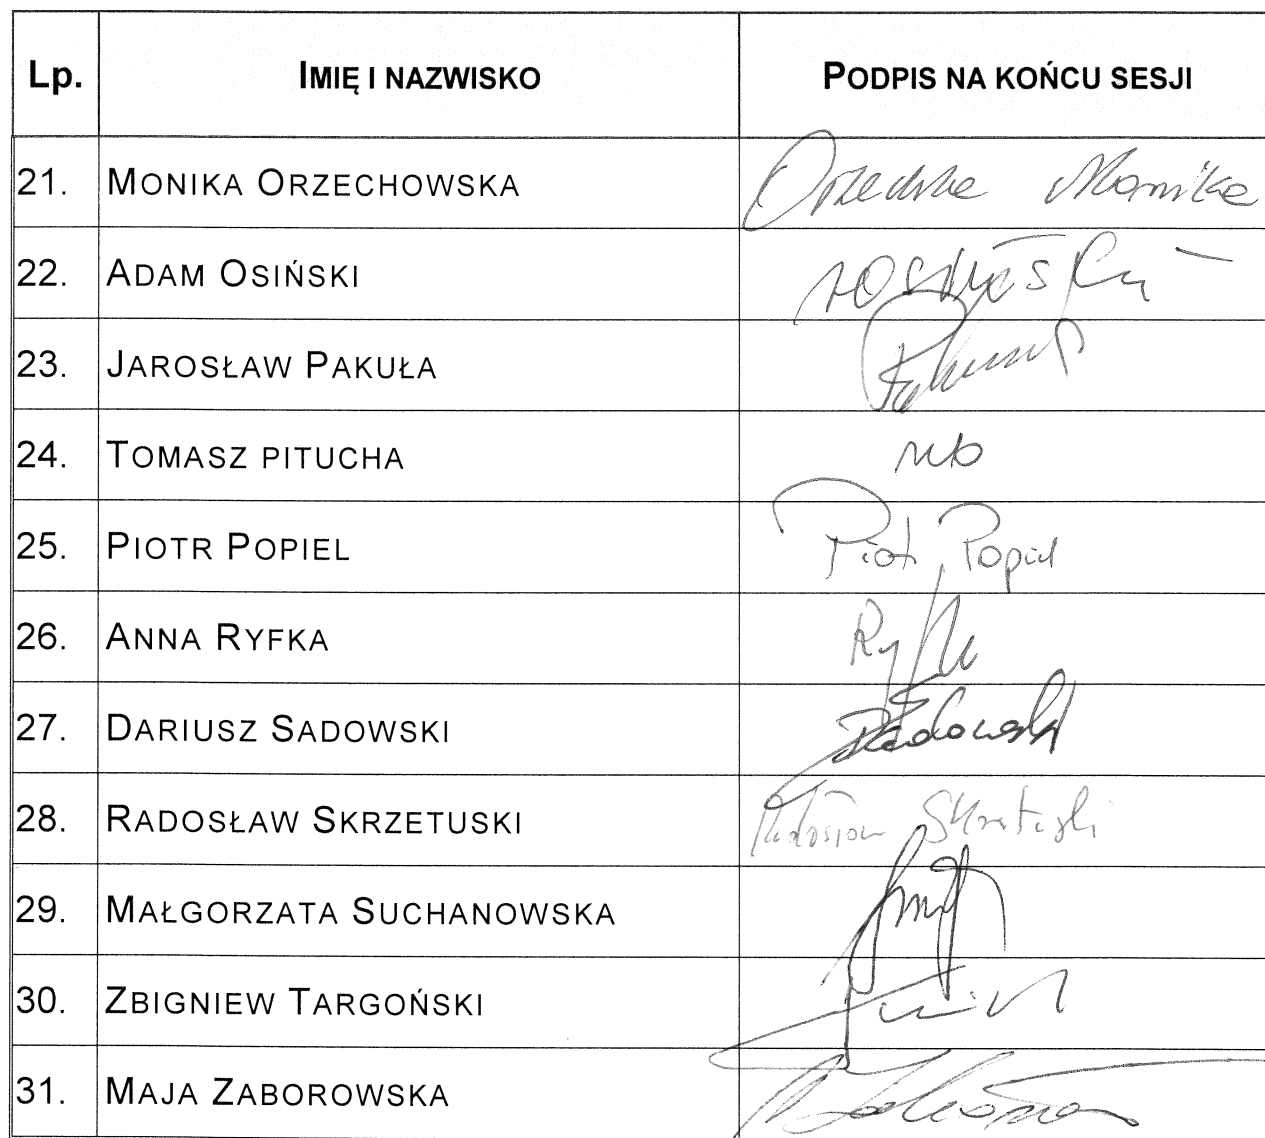 Lp. IMIĘ I NAZWISKO PODPIS NA KOŃCU SESJI
21. MONIKA ORZECHOWSKA Monika
22. ADAM OSIŃSKI
23. JAROSŁAW PAKUŁA
24. TOMASZ PITUCHA nb
25. PIOTR POPIEL Piotr Popiel
26. ANNA RYFKA
27. DARIUSZ SADOWSKI Sadowski
28. RADOSŁAW SKRZETUSKI
29. MAŁGORZATA SUCHANOWSKA
30. ZBIGNIEW TARGOŃSKI
31. MAJA ZABOROWSKA